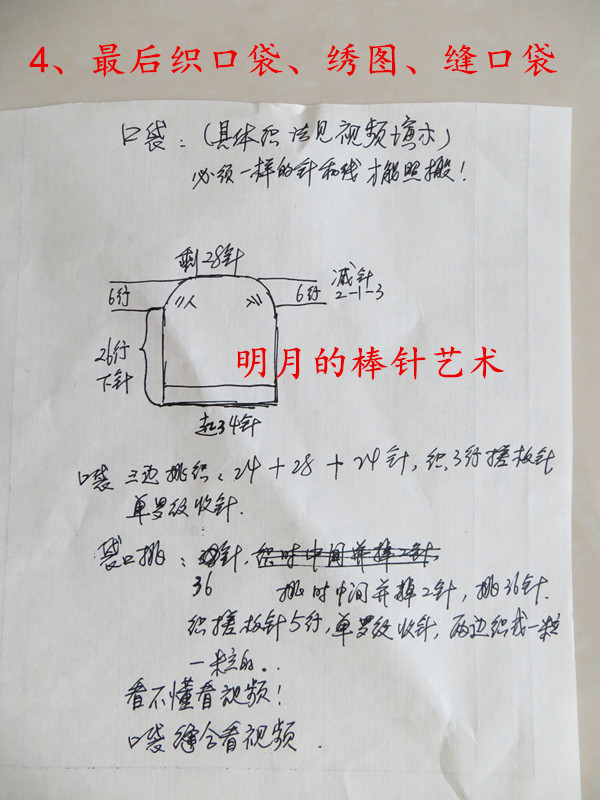 4、最后织口袋、绣图、缝口袋
口袋：（具体织法见视频演示）
必须一样的针和线才能照搬！
剩28针
减针
6行
6行
2-1-3
26行
下针
明月的棒针艺术
起34针
口袋三边挑织：24+28+24针，织3行搓板针
单罗纹收针.
袋口挑：针，织时中间并掉2针
36
挑时中间并掉2针，挑36针.
织搓板针5行，单罗纹收针，两边织成一粒
一粒的..
看不懂看视频！
口袋缝合看视频.